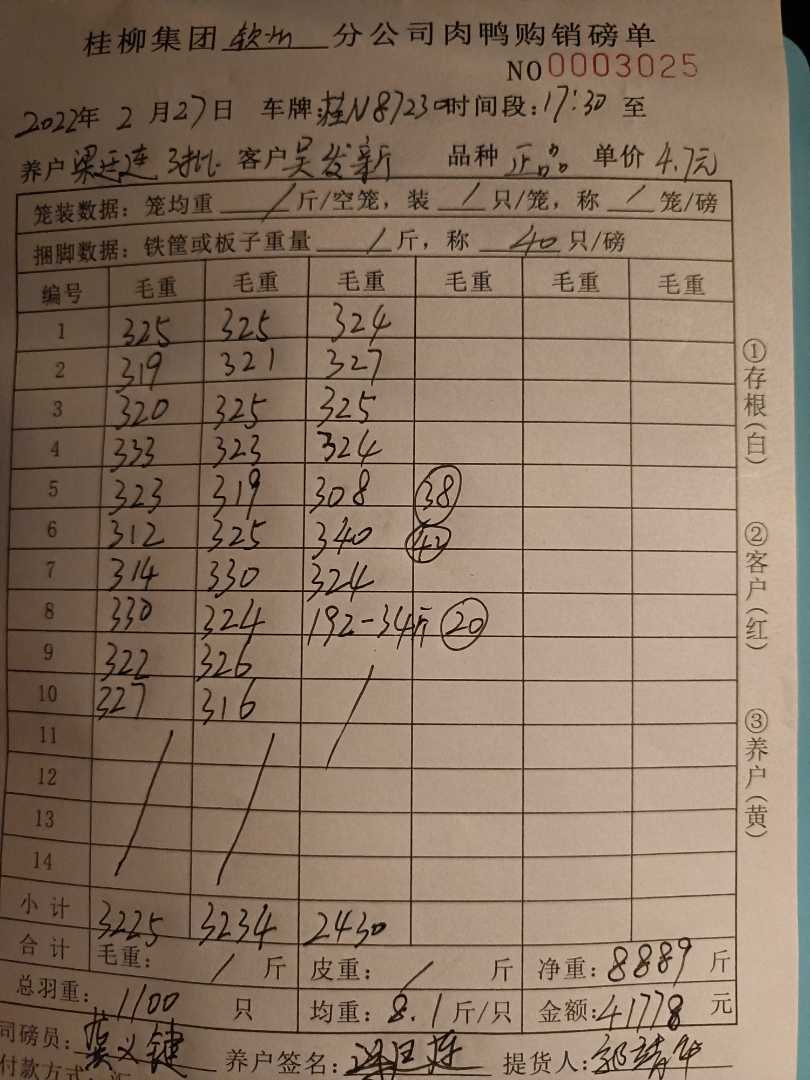 桂柳集团 钦州 分公司肉鸭购销磅单
NO 0003025
2022年 2 月 27 日 车牌:桂N87230 时间段:17:30 至
养户 梁廷连 3批 客户 吴发新 品种 正品 单价 4.7元
笼装数据: 笼均重 / 斤/空笼, 装 / 只/笼, 称 / 笼/磅
捆脚数据: 铁筐或板子重量 / 斤, 称 40 只/磅
编号 毛重 毛重 毛重 毛重 毛重 毛重
1 325 325 324
2 319 321 327
3 320 325 325
4 333 323 324
5 323 319 308 38
6 312 325 340 42
7 314 330 324
8 330 324 192-34斤 20
9 322 326 /
10 327 316
11 / /
12
13
14
小计 3225 3234 2430
合计 毛重: / 斤 皮重: / 斤 净重: 8889 斤
总羽重: 1100 只 均重: 8.1 斤/只 金额: 41778 元
司磅员: 养户签名: 提货人:
付款方式:汇
①存根(白)
②客户(红)
③养户(黄)